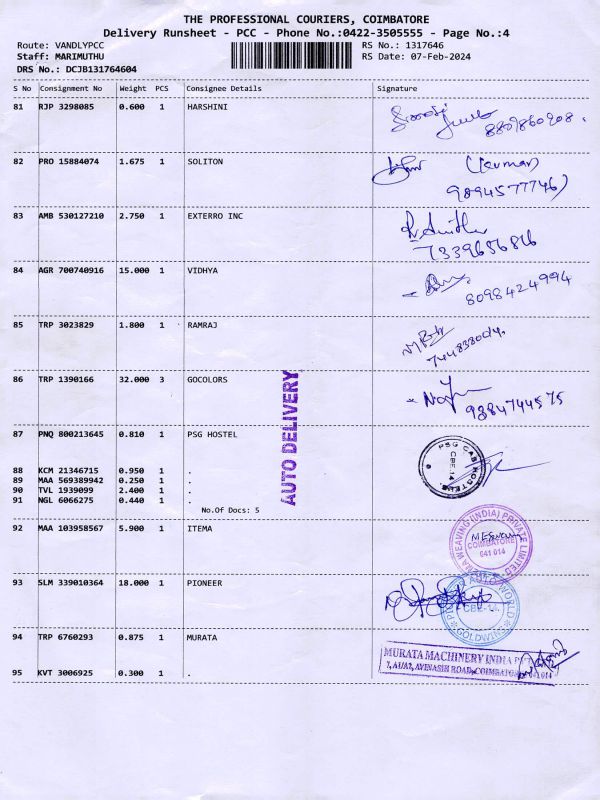 THE PROFESSIONAL COURIERS, COIMBATORE
Delivery Runsheet - PCC - Phone No.:0422-3505555 - Page No.:4
Route: VANDLYPCC RS No.: 1317646
Staff: MARIMUTHU RS Date: 07-Feb-2024
DRS No.: DCJB131764604
S No Consignment No Weight PCS Consignee Details Signature
81 RJP 3298085 0.600 1 HARSHINI
8809860908.
82 PRO 15884074 1.675 1 SOLITON
(Kumar)
9894577746)
83 AMB 530127210 2.750 1 EXTERRO INC
7339656816
84 AGR 700740916 15.000 1 VIDHYA
8098424994
85 TRP 3023829 1.800 1 RAMRAJ
86 TRP 1390166 32.000 3 GOCOLORS
9384744575
AUTO DELIVERY
87 PNQ 800213645 0.810 1 PSG HOSTEL
PSG CAS HOSTEL
CBE-14.
88 KCM 21346715 0.950 1 .
89 MAA 569389942 0.250 1 .
90 TVL 1939099 2.400 1 .
91 NGL 6066275 0.440 1 .
No.Of Docs: 5
92 MAA 103958567 5.900 1 ITEMA
WEAVING (INDIA) PRIVATE LIMITED
COIMBATORE
641 014
93 SLM 339010364 18.000 1 PIONEER
AUTO WORLD
CBE-14.
GOLDWINS
94 TRP 6760293 0.875 1 MURATA
MURATA MACHINERY INDIA
AVINASHI ROAD, COIMBATORE 641 014
95 KVT 3006925 0.300 1 .